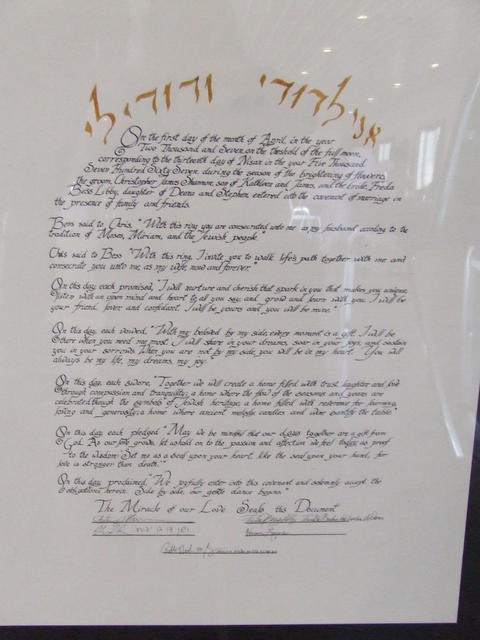 אני לדודי ודודי לי
On the first day of the month of April, in the year
Two Thousand and Seven, on the threshold of the full moon,
corresponding to the thirteenth day of Nisan in the year Five Thousand
Seven Hundred Sixty Seven, during the season of the brightening of flowers,
the groom, Christopher James Shannon, son of Kathleen and James, and the bride, Freda
Bess Libby, daughter of Deena and Stephen, entered into the covenant of marriage in
the presence of family and friends.
Bess said to Chris, "With this ring you are consecrated unto me as my husband according to the
tradition of Moses, Miriam, and the Jewish people."
Chris said to Bess "With this ring, I invite you to walk life's path together with me and
consecrate you unto me, as my wife, now and forever."
On this day each promised, "I will nurture and cherish that spark in you that makes you unique,
listen with an open mind and heart to all you say, and grow and learn with you. I will be
your friend, lover and confidant. I will be yours and you will be mine."
On this day, each vowed, "With my beloved by my side, every moment is a gift. I will be
there when you need me most. I will share in your dreams, soar in your joys, and sustain
you in your sorrows. When you are not by my side, you will be in my heart. You will
always be my life, my dreams, my joy."
On this day, each swore, "Together we will create a home filled with trust, laughter and love
through compassion and tranquility; a home where the flow of the seasons and years are
celebrated through the symbols of Jewish heritage; a home filled with reverence for learning,
loving and generosity; a home where ancient melody, candles and wine sanctify the table."
On this day, each pledged "May we be mindful that our lives together are a gift from
God. As our love grows, let us hold on to the passion and affection we feel today, as proof
to the wisdom: Set me as a seal upon your heart, like the seal upon your hand, for
love is stronger than death."
On this day proclaimed, "We joyfully enter into this covenant and solemnly accept the
obligations herein. Side by side, our gentle dance begins."
The Miracle of our Love Seals this Document